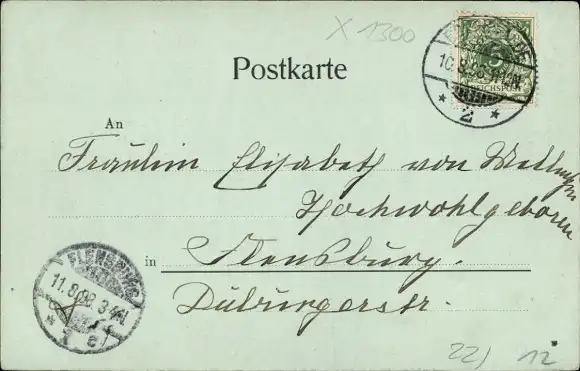 X 1300
Postkarte
5
REICHSPOST
10.8.98
* 2 *
An
Fräulein Elisabeth von
Hochwohlgeboren
in Flensburg.
Duburgerstr.
FLENSBURG
11.8.98 3-4N.
* e
22/ 12